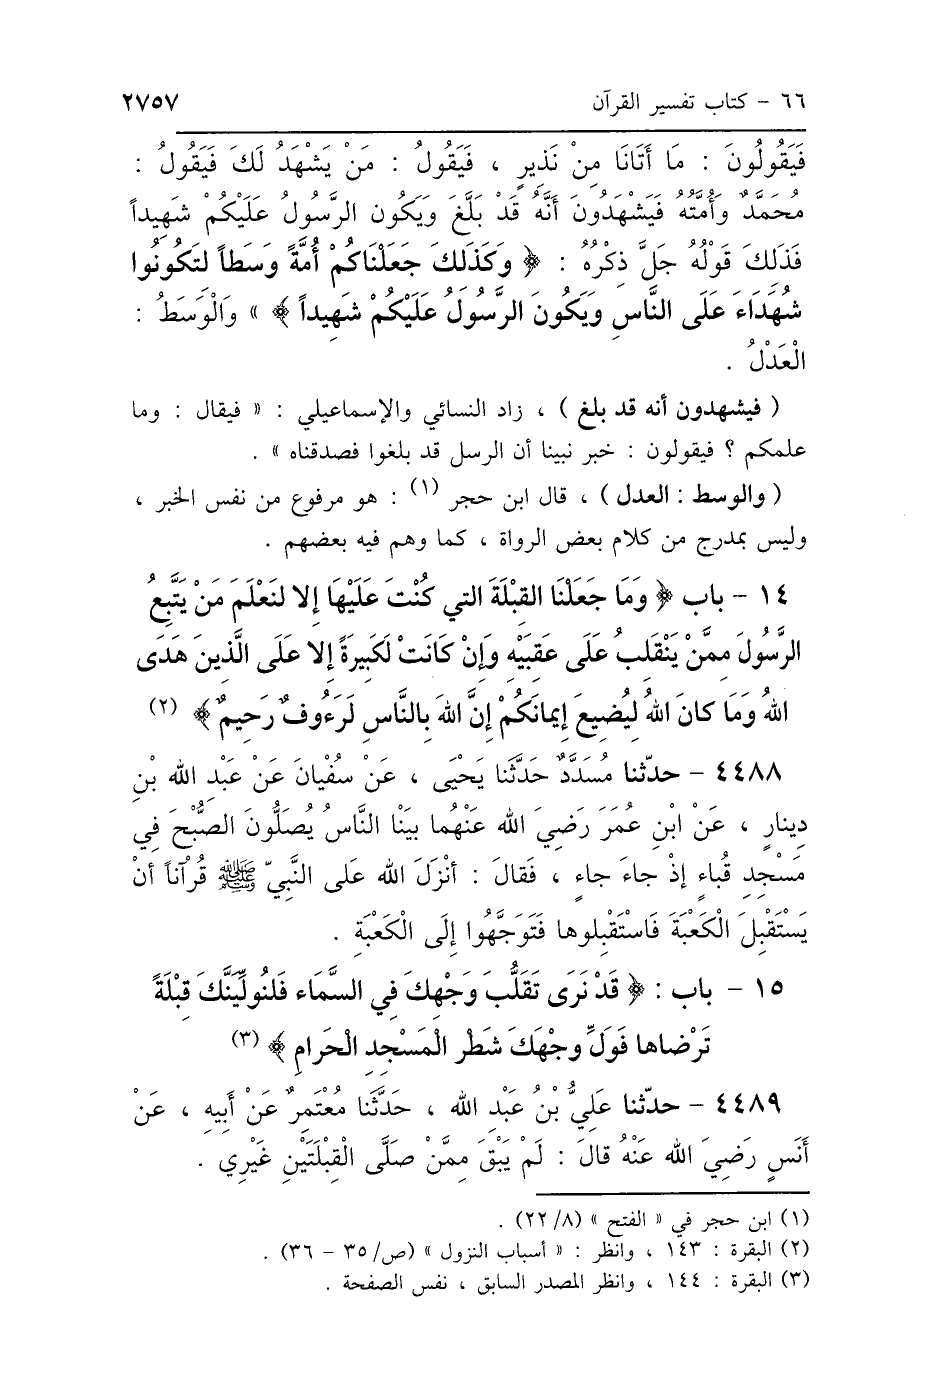 ٦٦ - كتاب تفسير القرآن ٢٧٥٧
فَيَقُولُونَ : مَا أَتَانَا مِنْ نَذِيرٍ ، فَيَقُولُ : مَنْ يَشْهَدُ لَكَ فَيَقُولُ :
مُحَمَّدٌ وَأُمَّتُهُ فَيَشْهَدُونَ أَنَّهُ قَدْ بَلَّغَ وَيَكُون الرَّسُولُ عَلَيْكُمْ شَهِيداً
فَذَلِكَ قَوْلُهُ جَلَّ ذِكْرُهُ : ﴿ وَكَذَلِكَ جَعَلْنَاكُمْ أُمَّةً وَسَطاً لتَكُونُوا
شُهَدَاءَ عَلَى النَّاسِ وَيَكُونَ الرَّسُولُ عَلَيْكُمْ شَهِيداً ﴾ » وَالْوَسَطُ :
الْعَدْلُ .
( فيشهدون أنه قد بلغ ) ، زاد النسائي والإسماعيلي : « فيقال : وما
علمكم ؟ فيقولون : خبر نبينا أن الرسل قد بلغوا فصدقناه » .
( والوسط : العدل ) ، قال ابن حجر (١) : هو مرفوع من نفس الخبر ،
وليس بمدرج من كلام بعض الرواة ، كما وهم فيه بعضهم .
١٤ - باب ﴿ وَمَا جَعَلْنَا القبْلَةَ التي كُنْتَ عَلَيْهَا إلا لنَعْلَمَ مَنْ يَتَّبِعُ
الرَّسُولَ ممَّنْ يَنْقَلبُ عَلَى عَقبَيْه وَإنْ كَانَتْ لَكَبيرَةً إلا عَلَى الَّذينَ هَدَى
اللهُ وَمَا كانَ اللهُ ليُضيعَ إيمانَكُمْ إنَّ اللهَ بالنَّاسِ لَرَءُوفٌ رَحيمٌ ﴾ (٢)
٤٤٨٨ - حدّثنا مُسَدَّدٌ حَدَّثَنَا يَحْيَى ، عَنْ سُفْيَانَ عَنْ عَبْدِ الله بْنِ
دِينارٍ ، عَنْ ابْنِ عُمَرَ رَضِيَ الله عَنْهُما بَيْنَا النَّاسُ يُصَلُّونَ الصُّبْحَ فِي
مَسْجِدِ قُباءٍ إذْ جاءَ جاءٍ ، فَقالَ : أنْزَلَ الله عَلى النَّبِيّ ﷺ قُرْآناً أنْ
يَسْتَقْبِلَ الْكَعْبَةَ فَاسْتَقْبِلوها فَتَوَجَّهُوا إلَى الْكَعْبَةِ .
١٥ - باب : ﴿ قَدْ نَرَى تَقَلُّبَ وَجْهكَ في السَّمَاء فَلنُوَلِّيَنَّكَ قبْلَةً
تَرْضاها فَوَلِّ وجْهَكَ شَطْر الْمَسْجد الْحَرامِ ﴾ (٣)
٤٤٨٩ - حدّثنا عَلِيُّ بْنُ عَبْدِ الله ، حَدَّثَنا مُعْتَمِرٌ عَنْ أَبِيهِ ، عَنْ
أَنَسٍ رَضِيَ الله عَنْهُ قالَ : لَمْ يَبْقَ مِمَّنْ صَلَّى الْقِبْلَتَيْنِ غَيْرِي .
(١) ابن حجر في « الفتح » (٨/ ٢٢) .
(٢) البقرة : ١٤٣ ، وانظر : « أسباب النزول » (ص/ ٣٥ - ٣٦) .
(٣) البقرة : ١٤٤ ، وانظر المصدر السابق ، نفس الصفحة .